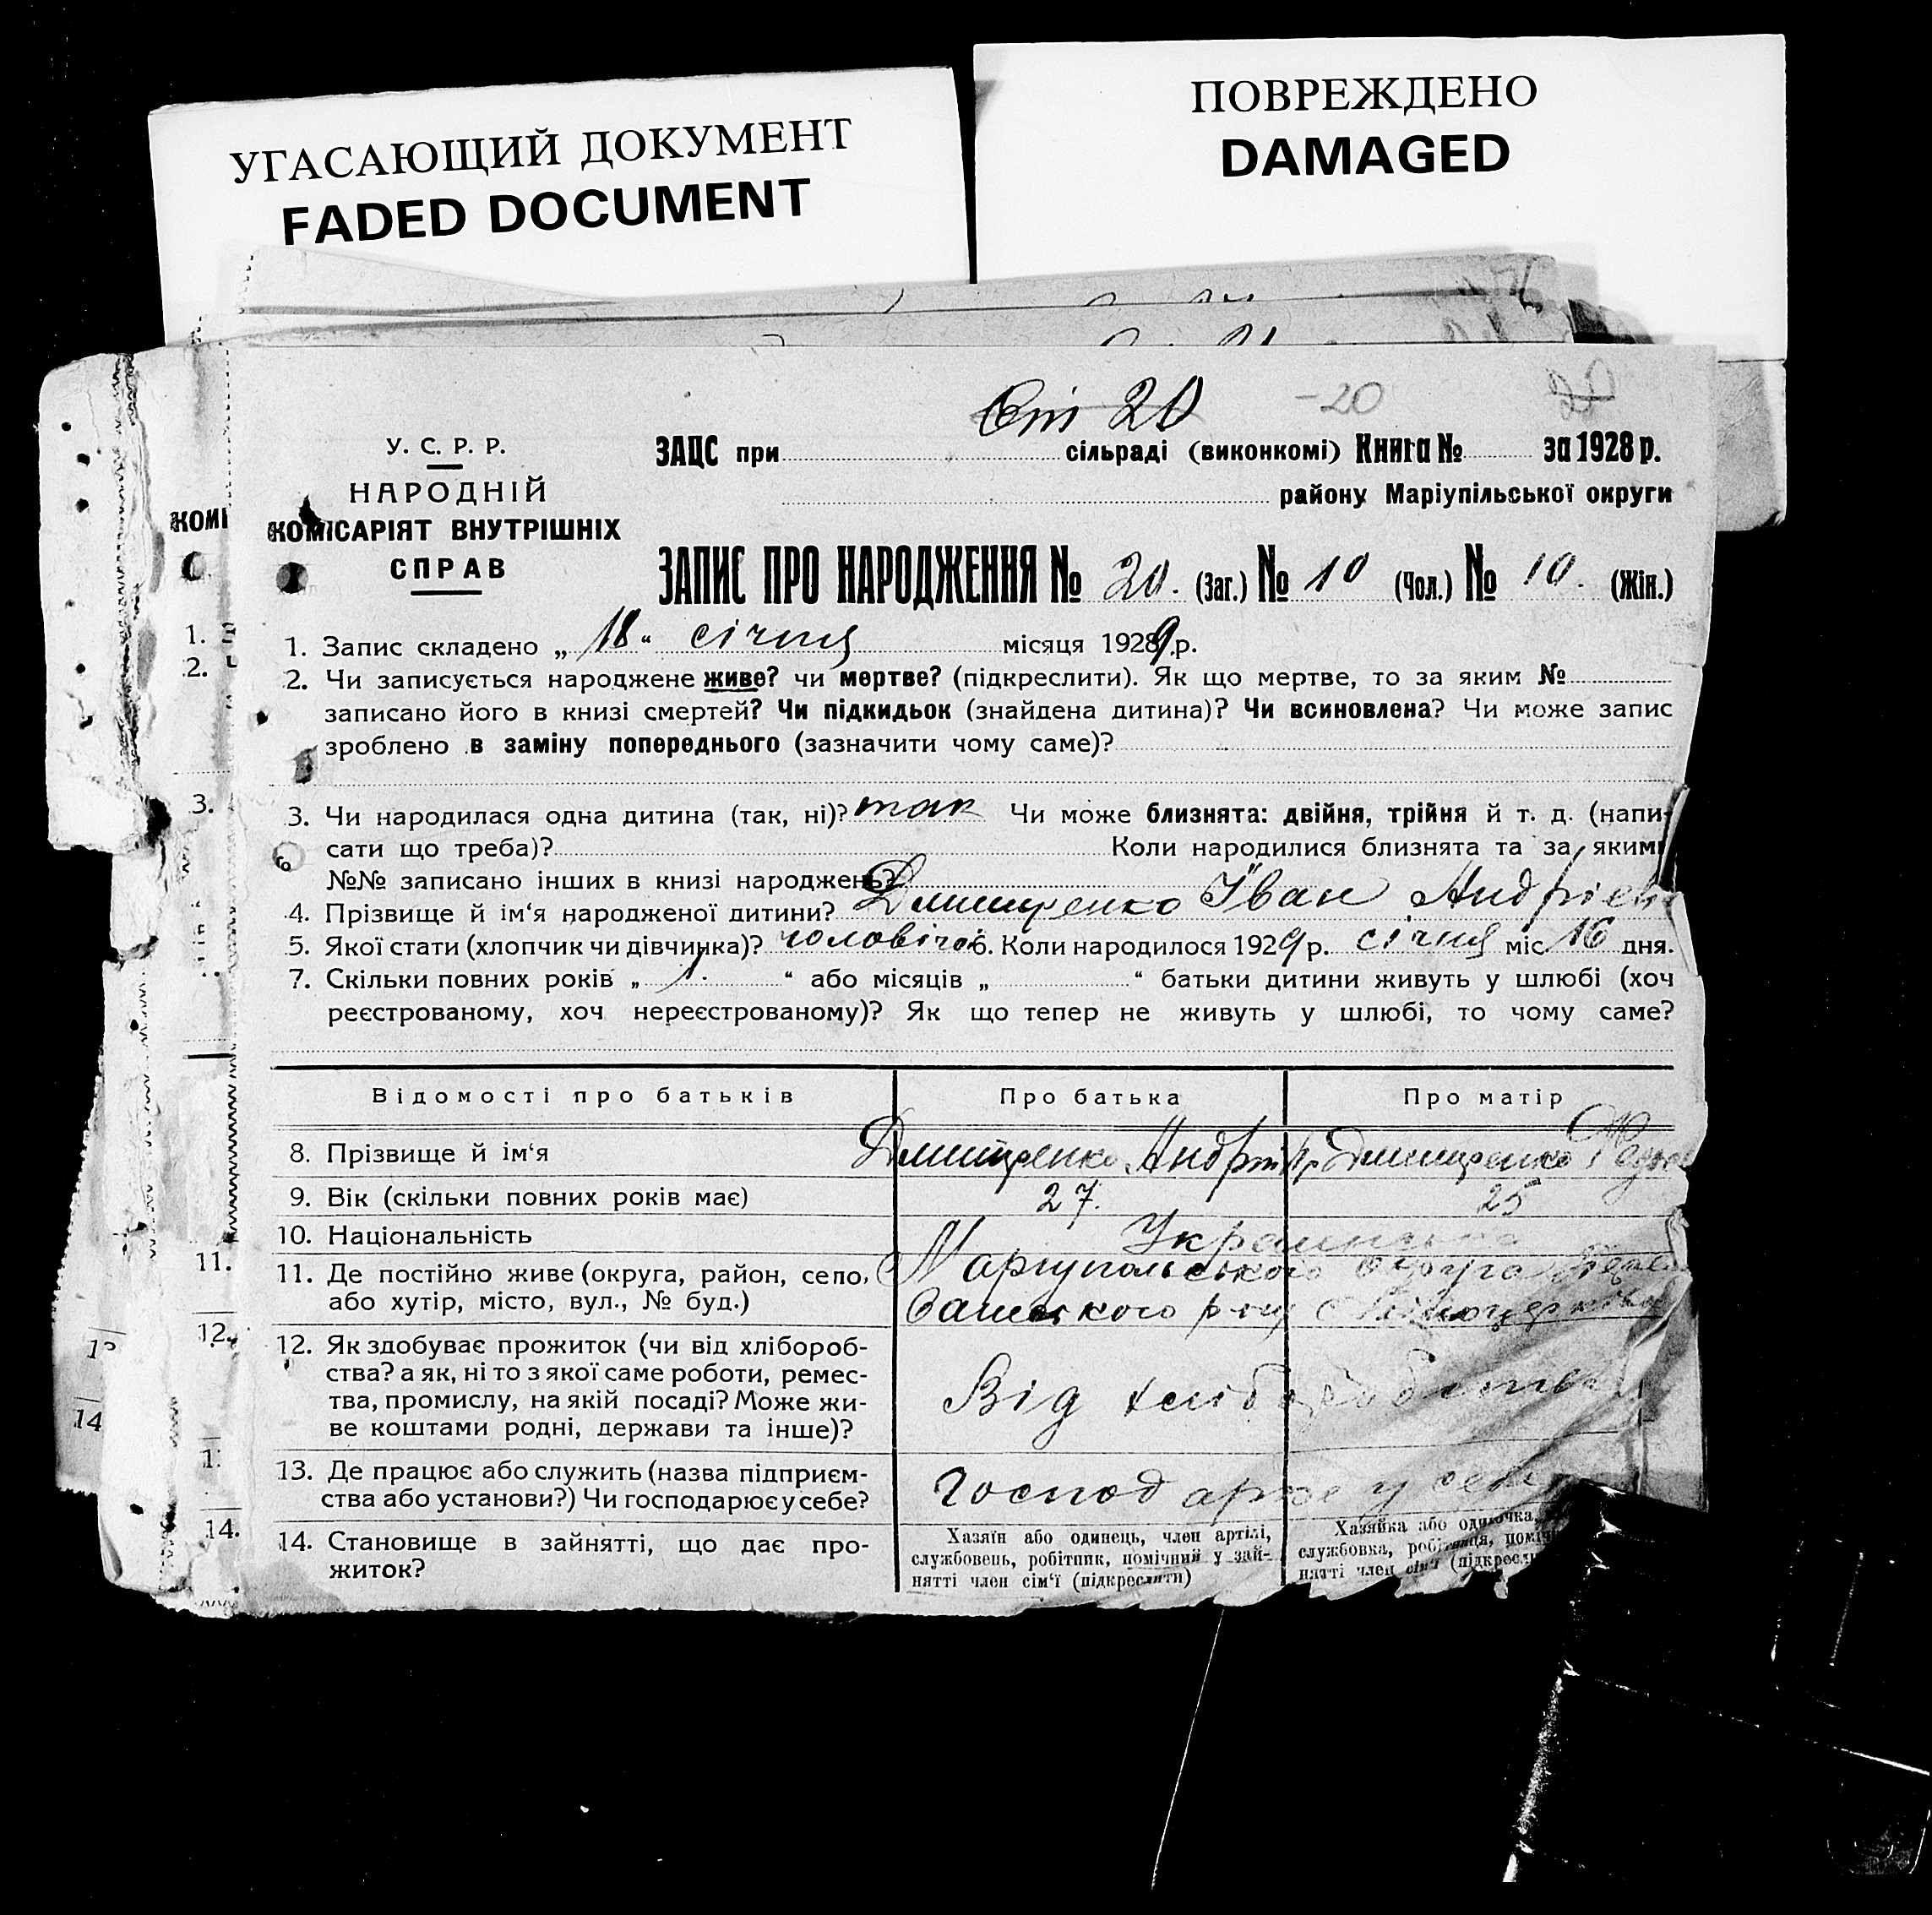 УГАСАЮЩИЙ ДОКУМЕНТ
FADED DOCUMENT
ПОВРЕЖДЕНО
DAMAGED
20 -20
У. С. Р. Р.
НАРОДНІЙ
КОМІСАРІЯТ ВНУТРІШНІХ
СПРАВ
ЗАЦС при сільраді (виконкомі) Книга № за 1928 р.
району Маріупільської округи
ЗАПИС ПРО НАРОДЖЕННЯ № 20. (Заг.) № 10 (Чол.) № 10. (Жін.)
1. Запис складено „ 18 “ січня місяця 1929 р.
2. Чи записується народжене живе? чи мертве? (підкреслити). Як що мертве, то за яким №
записано його в книзі смертей? Чи підкидьок (знайдена дитина)? Чи всиновлена? Чи може запис
зроблено в заміну попереднього (зазначити чому саме)?
3. Чи народилася одна дитина (так, ні)? так Чи може близнята: двійня, трійня й т. д. (напи-
сати що треба)? Коли народилися близнята та за якими
№№ записано інших в книзі народжень?
4. Прізвище й ім‘я народженої дитини? Дмитренко Іван
5. Якої стати (хлопчик чи дівчинка)? чоловічої 6. Коли народилося 1929 р. січня міс. 16 дня.
7. Скільки повних років „ 1. “ або місяців „ “ батьки дитини живуть у шлюбі (хоч
реєстрованому, хоч нереєстрованому)? Як що тепер не живуть у шлюбі, то чому саме?
Відомості про батьків Про батька Про матір
8. Прізвище й ім‘я Дмитренко Андрій Дмитренко
9. Вік (скільки повних років має) 27. 25
10. Національність
11. Де постійно живе (округа, район, село,
або хутір, місто, вул., № буд.)
12. Як здобуває прожиток (чи від хлібороб-
ства? а як, ні то з якої саме роботи, ремес-
тва, промислу, на якій посаді? Може жи-
ве коштами родні, держави та інше)?
Від хліборобства
13. Де працює або служить (назва підприєм-
ства або установи?) Чи господарює у себе?
14. Становище в зайнятті, що дає про-
житок?
Хазяїн або одинець, член артілі,
службовець, робітник, помічний у зай-
нятті член сім‘ї (підкреслити)
Хазяйка або одиночка,
службовка, робітниця,
нятті член сім‘ї